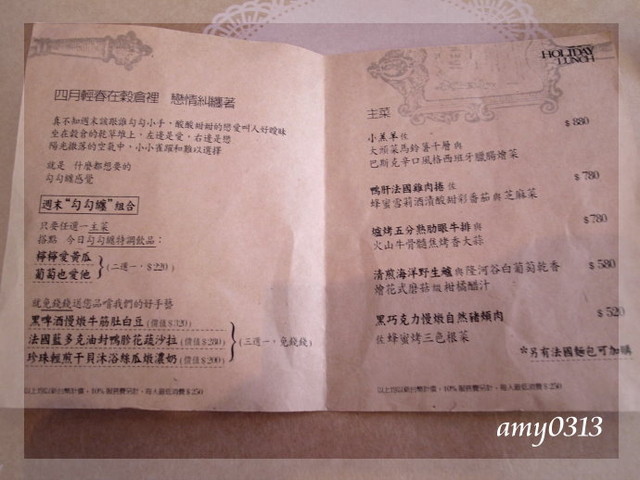 四月輕春在穀倉裡　戀情糾纏著
真不知週末該跟誰勾勾小手，酸酸甜甜的戀愛叫人好曖昧
坐在穀倉的乾草堆上，左邊是愛，右邊是戀
陽光微落的空氣中，小小雀躍和難以選擇
就是 什麼都想要的
勾勾纏感覺
週末"勾勾纏"組合
只要任選一主菜
搭點 今日勾勾纏特調飲品：
檸檬愛黃瓜
葡萄也愛他
(二選一，$220)
就免錢錢送您品嚐我們的好手藝
黑啤酒慢燉牛筋肚白豆 (價值$320)
法國藍多克油封鴨胗花蔬沙拉 (價值$280)
珍珠輕煎干貝沐浴絲瓜燉濃奶 (價值$200)
(三選一，免錢錢)
以上均以新台幣計價，10%服務費另計，每人最低消費$250
HOLIDAY
LUNCH
主菜
小羔羊佐 $880
大頭菜馬鈴薯千層與
巴斯克辛口風格西班牙臘腸燴菜
鴨肝法國雞肉捲佐 $780
蜂蜜雪莉酒漬酸甜彩番茄與芝麻菜
爐烤五分熟肋眼牛排與 $780
火山牛骨髓焦烤香大蒜
清煎海洋野生鱸與隆河谷白葡萄乾香 $580
燴花式磨菇綴柑橘醋汁
黑巧克力慢燉自然豬頰肉 $520
佐蜂蜜烤三色根菜
*另有法國麵包可加購
以上均以新台幣計價，10%服務費另計，每人最低消費$250
amy0313